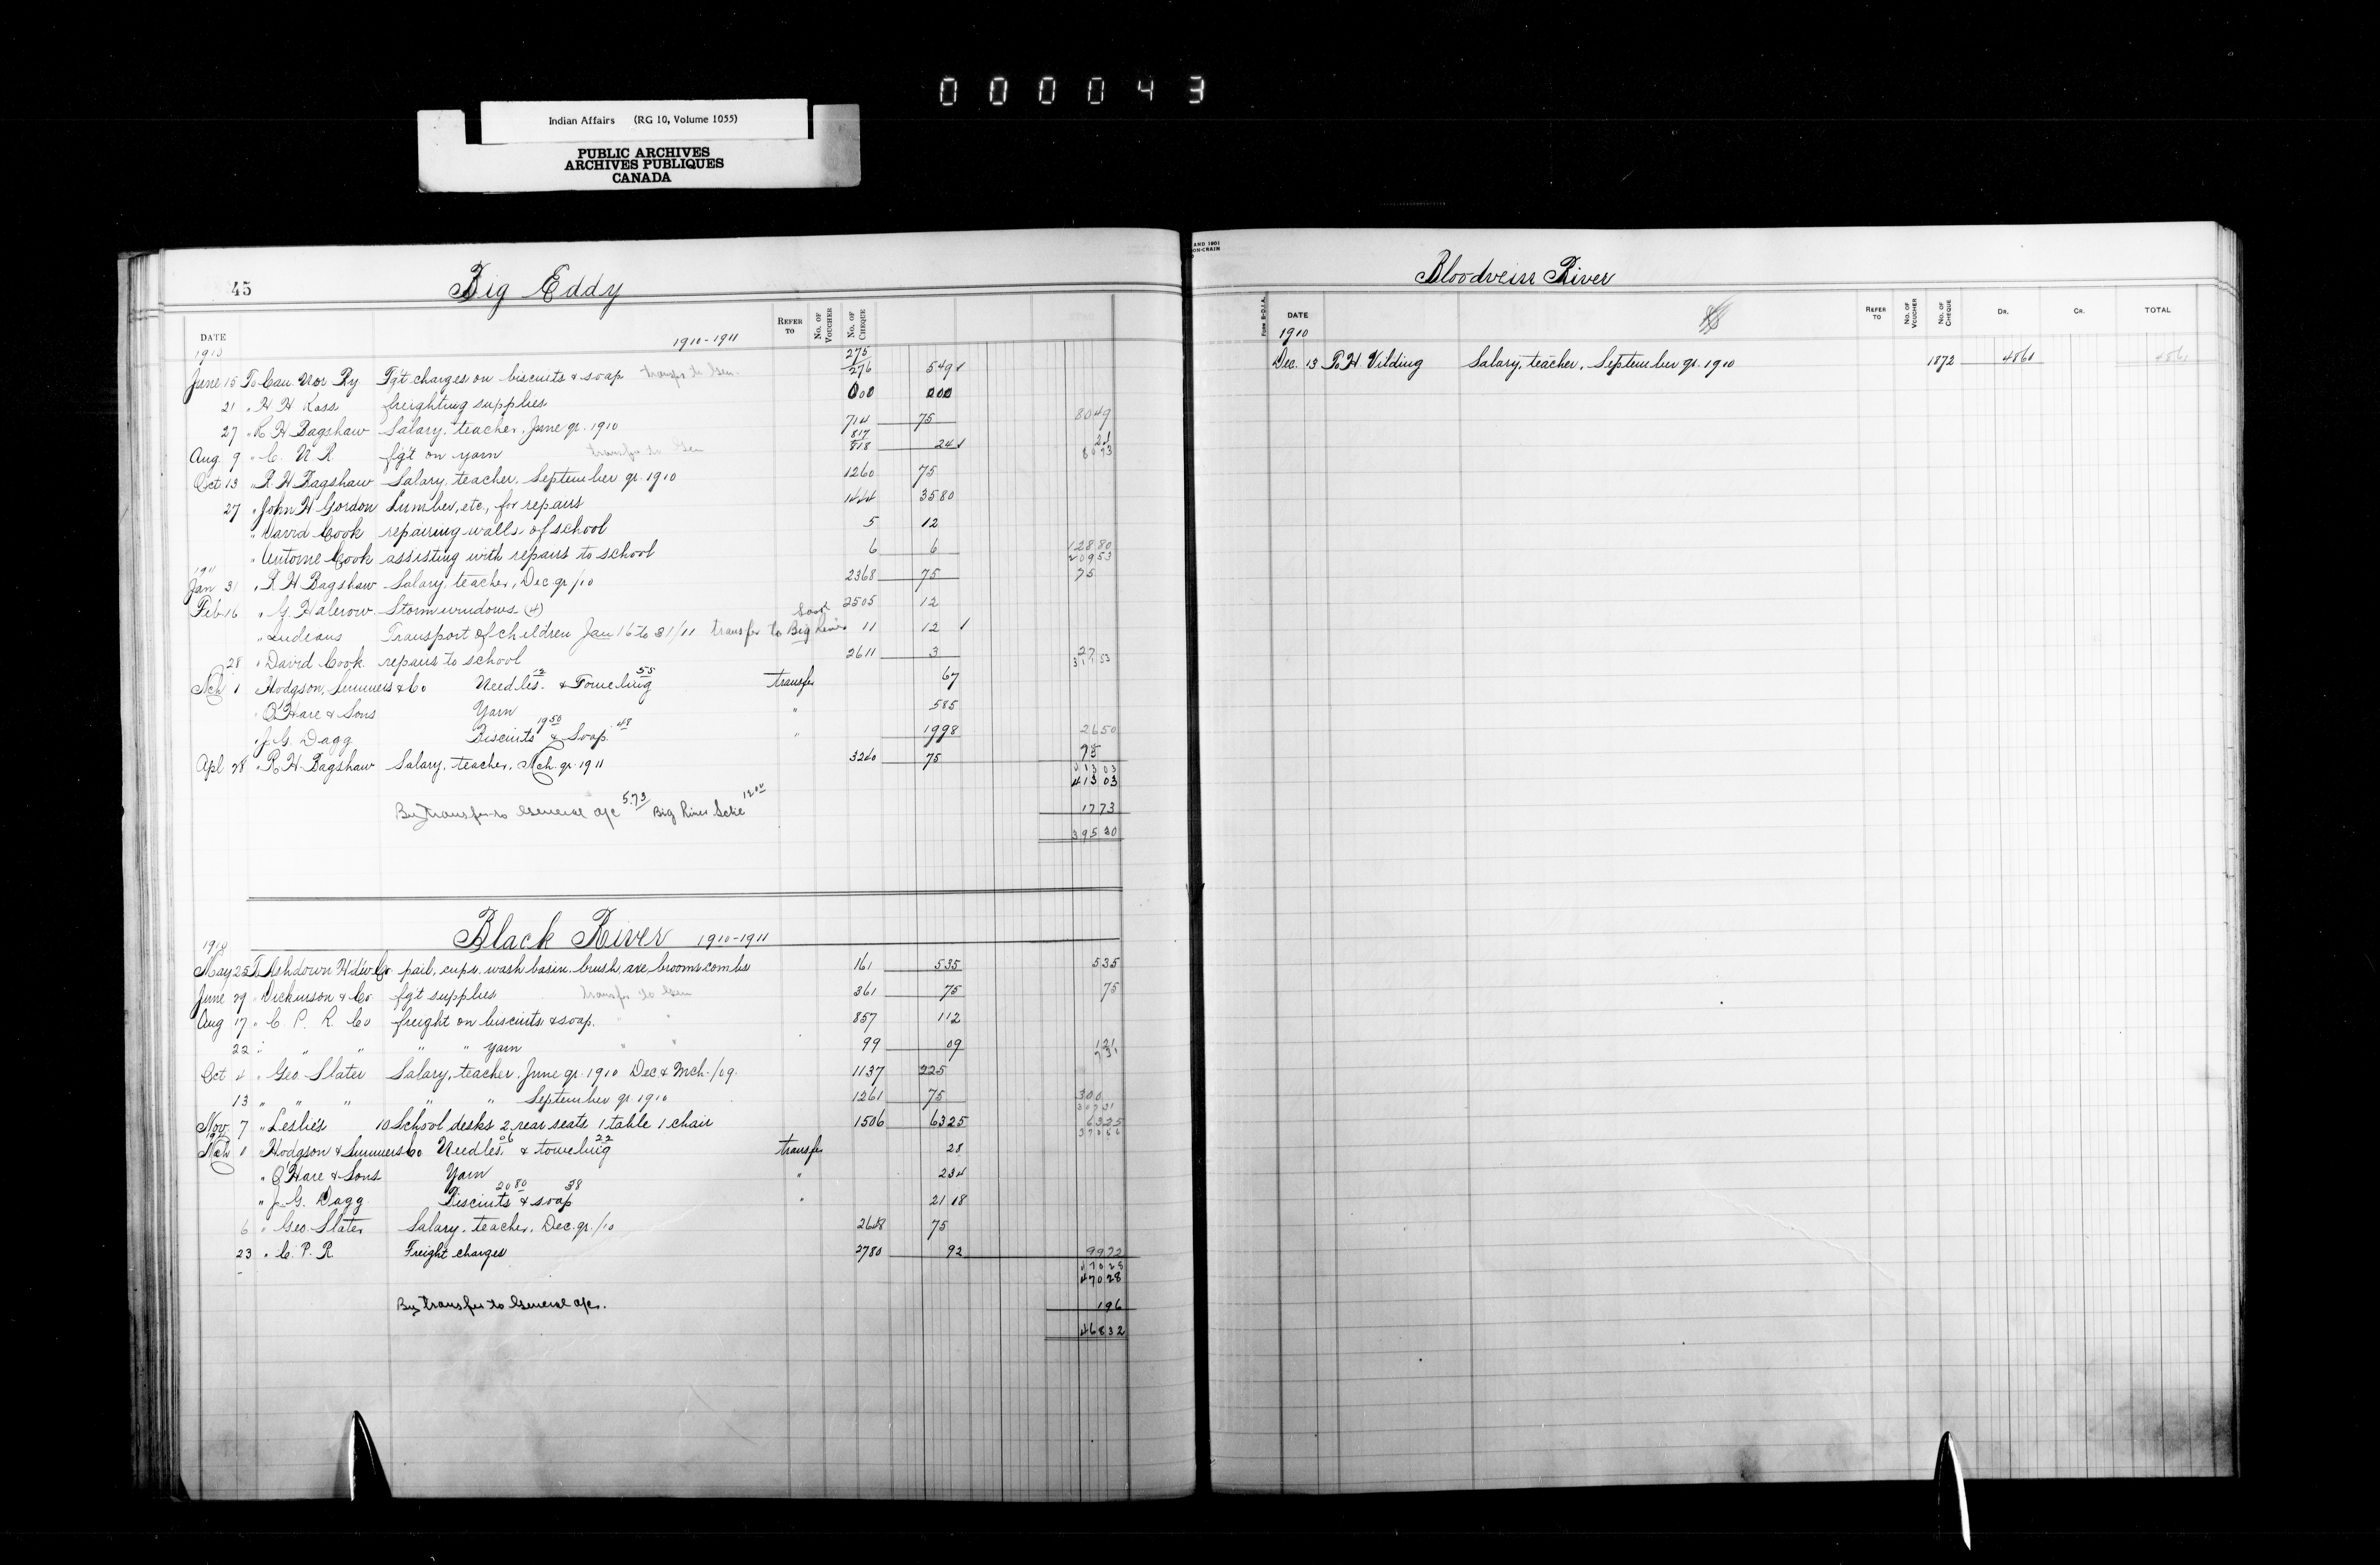 000043
Indian Affairs (RG 10, Volume 1055)
PUBLIC ARCHIVES
ARCHIVES PUBLIQUES
CANADA
45 Big Eddy
DATE 1910-1911 REFER TO No. OF VOUCHER No. OF CHEQUE
1910 275
June 15 To Can. Nor Ry Fgt charges on biscuits & soap transfer to Gen. 276 549
21 " H H Ross freighting supplies 000 000
27 " R H Bagshaw Salary, teacher, June qr. 1910 714 75 8049
Aug 9 " C. N. R. fgt on yarn transfer to Gen 817 818 24 24 8073
Oct 13 " R H Bagshaw Salary, teacher, September qr. 1910 1260 75
27 " John H Gordon Lumber, etc., for repairs 1444 3580
" David Cook repairing walls of school 5 12
" Antoine Cook assisting with repairs to school 6 6 12880 20953
1911
Jan 31 " R H Bagshaw Salary, teacher, Dec. qr /10 2368 75 75
Feb 16 " G. Halcrow Storm windows (4) 2505 12
" Indians Transport of children Jan 16 to 31/11 transfer to Big River 11 12
28 " David Cook repairs to school 2611 3 27 31153
Mch 1 Hodgson, Sumners & Co Needles 12 & Toweling 55 transfer 67
" O'Hare & Sons Yarn " 585
" J. G. Dagg Biscuits 19 50 & Soap 48 " 1998 2650
Apl 28 " R. H. Bagshaw Salary, teacher, Mch. qr. 1911 3240 75 75
41303
41303
By transfer to General a/c 5.73 Big River Schl 12.00 1773
39530
Black River 1910-1911
1910
May 25 To Ashdown H'dw Co pail, cups, wash basin, brush, axe, brooms combs 161 535 535
June 29 " Dickinson & Co. fgt supplies transfer to Gen 361 75 75
Aug 17 " C. P. R. Co freight on biscuits & soap. " " 857 112
22 " " " " " yarn " " 99 09 121 731
Oct 4 " Geo. Slater Salary, teacher, June qr. 1910 Dec & Mch. /09. 1137 225
13 " " " " " September qr 1910 1261 75 300 30731
Nov 7 " Leslie's 10 School desks 2 rear seats 1 table 1 chair 1506 6325 6325 37056
Mch 1 Hodgson & Sumners Co Needles 06 & toweling 22 transfer 28
" O'Hare & Sons Yarn " 234
" J. G. Dagg Biscuits 20 80 & soap 38 " 2118
6 " Geo. Slater Salary, teacher, Dec. qr. /10 2648 75
23 " C. P. R. Freight charges 2780 92 9972
47028
47028
By transfer to General a/c. 196
46832
AND 1901
ON-CRAIN
Bloodvein River
Form B-D.I.A. DATE REFER TO No. OF VOUCHER No. OF CHEQUE DR. CR. TOTAL
1910
Dec. 13 R H Vilding Salary, teacher, September qr. 1910 1872 4861 4861